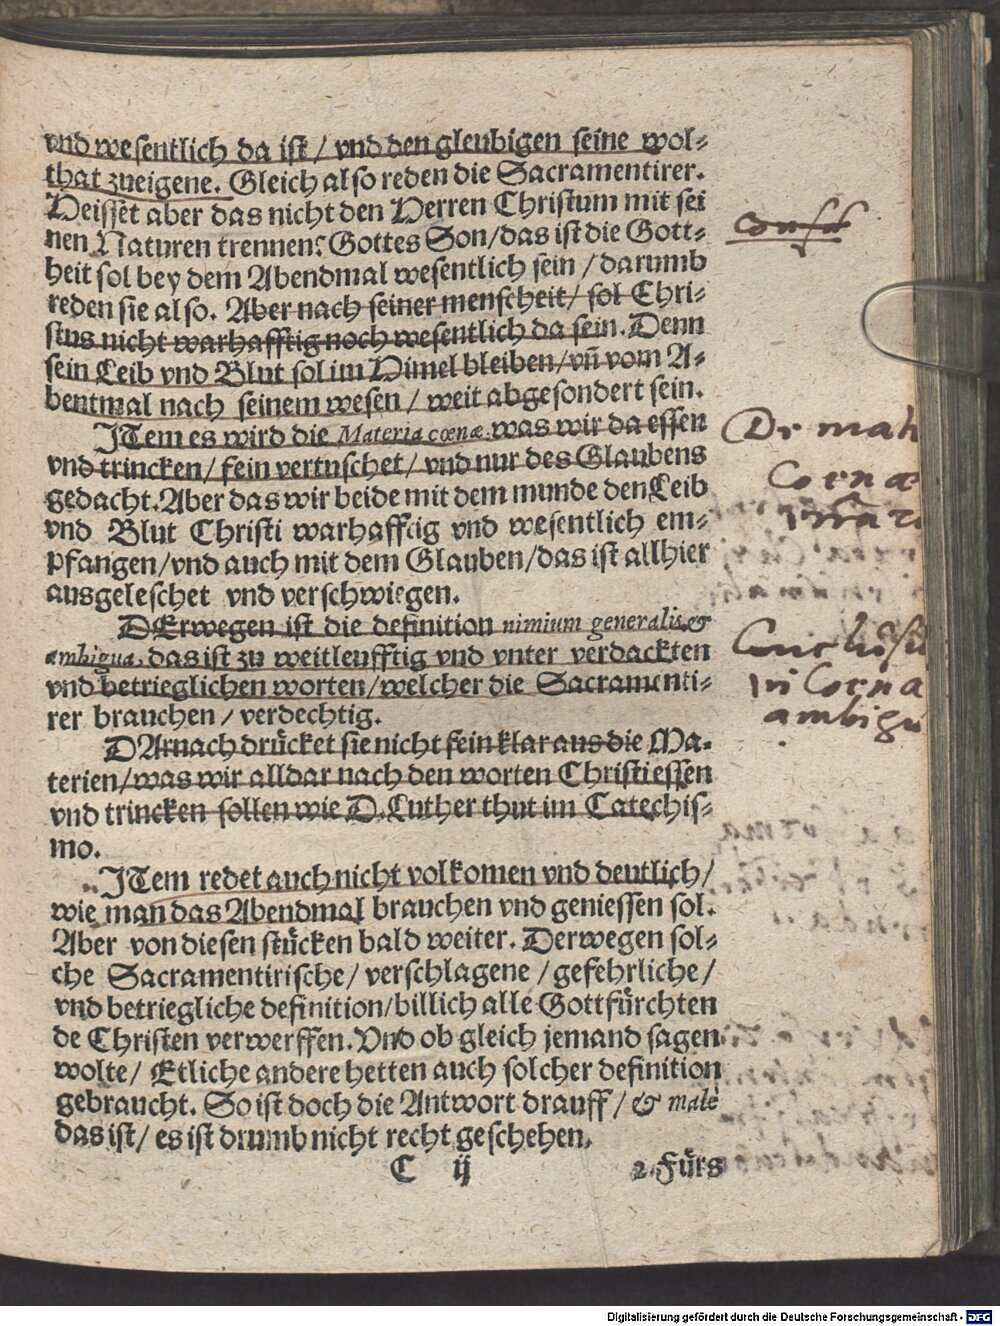 vnd wesentlich da ist / vnd den gleubigen seine wol-
that zueigene. Gleich also reden die Sacramentirer.
Heisset aber das nicht den Herren Christum mit sei
nen Naturen trennen? Gottes Son / das ist die Gott-
heit sol bey dem Abendmal wesentlich sein / darumb
reden sie also. Aber nach seiner menscheit / sol Chri-
stus nicht warhafftig noch wesentlich da sein. Denn
sein Leib vnd Blut sol im Himel bleiben / vn̄ vom A-
bentmal nach seinem wesen / weit abgesondert sein.
JTem es wird die Materia cœnæ, was wir da essen
vnd trincken / fein vertuschet / vnd nur des Glaubens
gedacht. Aber das wir beide mit dem munde den Leib
vnd Blut Christi warhafftig vnd wesentlich em-
pfangen / vnd auch mit dem Glauben / das ist allhier
ausgeleschet vnd verschwiegen.
DErwegen ist die definition nimium generalis &
ambigua, das ist zu weitleufftig vnd vnter verdackten
vnd betrieglichen worten / welcher die Sacramenti-
rer brauchen / verdechtig.
DArnach drücket sie nicht fein klar aus die Ma-
terien / was wir alldar nach den worten Christi essen
vnd trincken sollen wie D. Luther thut im Catechis-
mo.
JTem redet auch nicht volkomen vnd deutlich /
wie man das Abendmal brauchen vnd geniessen sol.
Aber von diesen stücken bald weiter. Derwegen sol-
che Sacramentirische / verschlagene / gefehrliche /
vnd betriegliche definition / billich alle Gottfürchten
de Christen verwerffen. Vnd ob gleich jemand sagen
wolte / Etliche andere hetten auch solcher definition
gebraucht. So ist doch die Antwort drauff / & malè
das ist / es ist drumb nicht recht geschehen.
C ij 2. Fürs
De mat
Coena
in Coena
ambigu
Digitalisierung gefördert durch die Deutsche Forschungsgemeinschaft - DFG